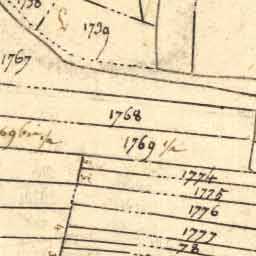 1738
1739
1767
1768
1769 1/2
1774
1775
1776
1777
78